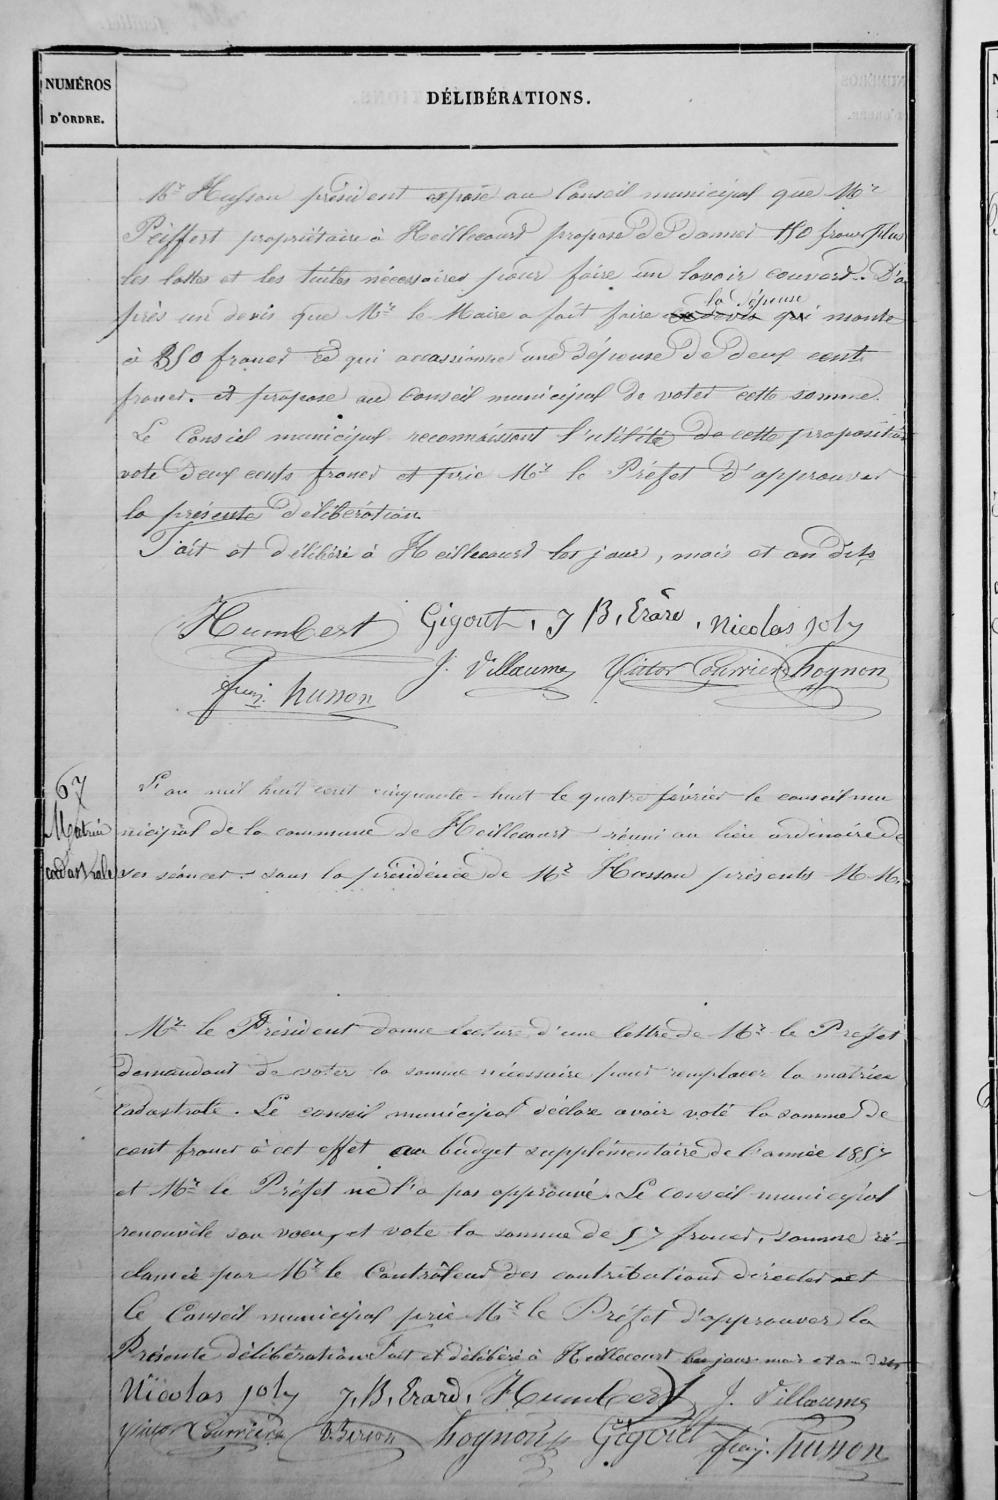 NUMÉROS
D'ORDRE.
DÉLIBÉRATIONS.
Mr Husson président expose au Conseil municipal que Mr
Peiffert propriétaire à Heillecourt propose de donner 150 francs plus
les lattes et les tuiles nécessaires pour faire un lavoir couvert. D'a
près un devis que Mr le Maire a fait faire la dépense monte
à 350 francs ce qui occasionne une dépense de deux cents
francs. et propose au Conseil municipal de voter cette somme.
Le Conseil municipal reconnaissant l'utilité de cette proposition
vote deux cents francs et prie Mr le Préfet d'approuver
la présente délibération
Fait et délibéré à Heillecourt les jour, mois et an dits
Humbert Gigout, J B, Erard, Nicolas joly
J. Villaume Victor Courrier hognon
husson
67
Matrice
cadastrale
L'an mil huit cent cinquante-huit le quatre février le conseil mu
nicipal de la commune de Heillecourt réuni au lieu ordinaire de
ses séances sous la présidence de Mr Husson présents M M.
Mr le Président donne lecture d'une lettre de Mr le Préfet
demandant de voter la somme nécessaire pour remplacer la matrice
cadastrale. Le conseil municipal déclare avoir voté la somme de
cent francs à cet effet au budget supplémentaire de l'année 1857
et Mr le Préfet ne l'a pas approuvé. Le Conseil municipal
renouvèle son voeu, et vote la somme de 57 francs, somme ré-
clamée par Mr le Contrôleur des contributions directes et
le Conseil municipal prie Mr le Préfet d'approuver la
Présente délibération Fait et délibéré à Heillecourt les jour mois et an dits
Nicolas joly J, B, Erard, Humbert J. Villaume
Victor Courrier hognon Gigout husson